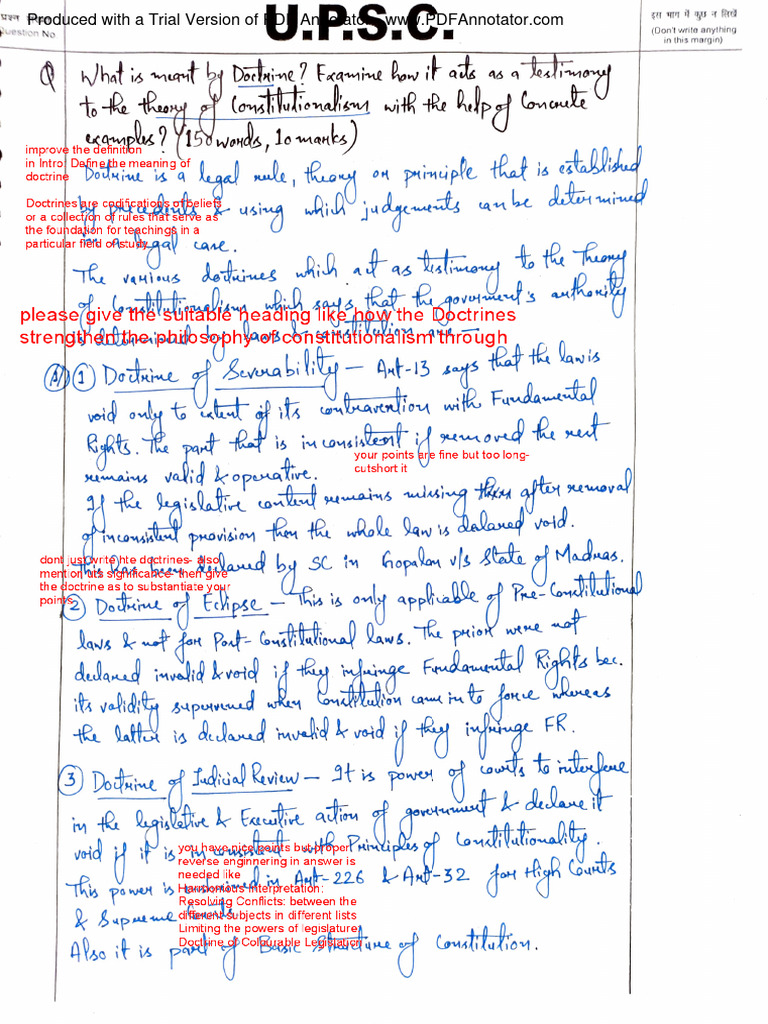 Produced with a Trial Version of PDF Annotator - www.PDFAnnotator.com
U.P.S.C.
प्रश्न
Question No
इस भाग में कुछ न लिखें
(Don't write anything
in this margin)
Q What is meant by Doctrine? Examine how it acts as a testimony
to the theory of Constitutionalism with the help of Concrete
examples? (150 words, 10 marks)
improve the definition
in Intro! Define the meaning of
doctrine
Doctrine is a legal rule, theory or principle that is established
Doctrines are codifications of beliefs
or a collection of rules that serve as
the foundation for teachings in a
particular field of study
by precedents & using which judgements can be determined
in a legal case.
The various doctrines which act as testimony to the Theory
of Constitutionalism which says that the government's authority
please give the suitable heading like how the Doctrines
strengthen the philosophy of constitutionalism through
is determined by laws & constitution are –
(A) 1 Doctrine of Severability – Art-13 says that the law is
void only to extent of its contravention with Fundamental
Rights. The part that is inconsistent if removed the rest
your points are fine but too long-
cutshort it
remains valid & operative.
If the legislative content remains missing after removal
of inconsistent provision then the whole law is dalared void.
dont just write hte dcctrines- also
mention its significance- then give
the doctrine as to substantiate your
points
this has been declared by SC in Gopalan v/s State of Madras.
2 Doctrine of Eclipse – This is only applicable of Pre-Constitutional
laws & not for Post-Constitutional laws. The prior were not
declared invalid & void if they infringe Fundamental Rights bec.
its validity supervened when Constitution came in to force whereas
the latter is declared invalid & void if they infringe FR.
3 Doctrine of Judicial Review – It is power of courts to interfere
in the legislative & Executive action of government & declare it
void if it is inconsistent with Principles of Constitutionality.
you have nice points but proper
reverse enginnering in answer is
needed like
Harmonious Interpretation:
Resolving Conflicts: between the
different subjects in different lists
Limiting the powers of legislature:
Doctrine of Colourable Legislation
This power is enshrined in Art-226 & Art-32 for High Courts
& Supreme Courts
Also it is part of Basic Structure of Constitution.